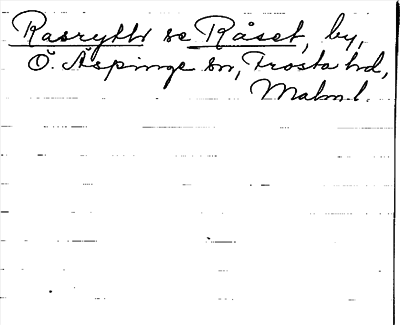 Rasryttr se Råset, by,
Ö. Äspinge sn, Frosta hd,
Malm. l.